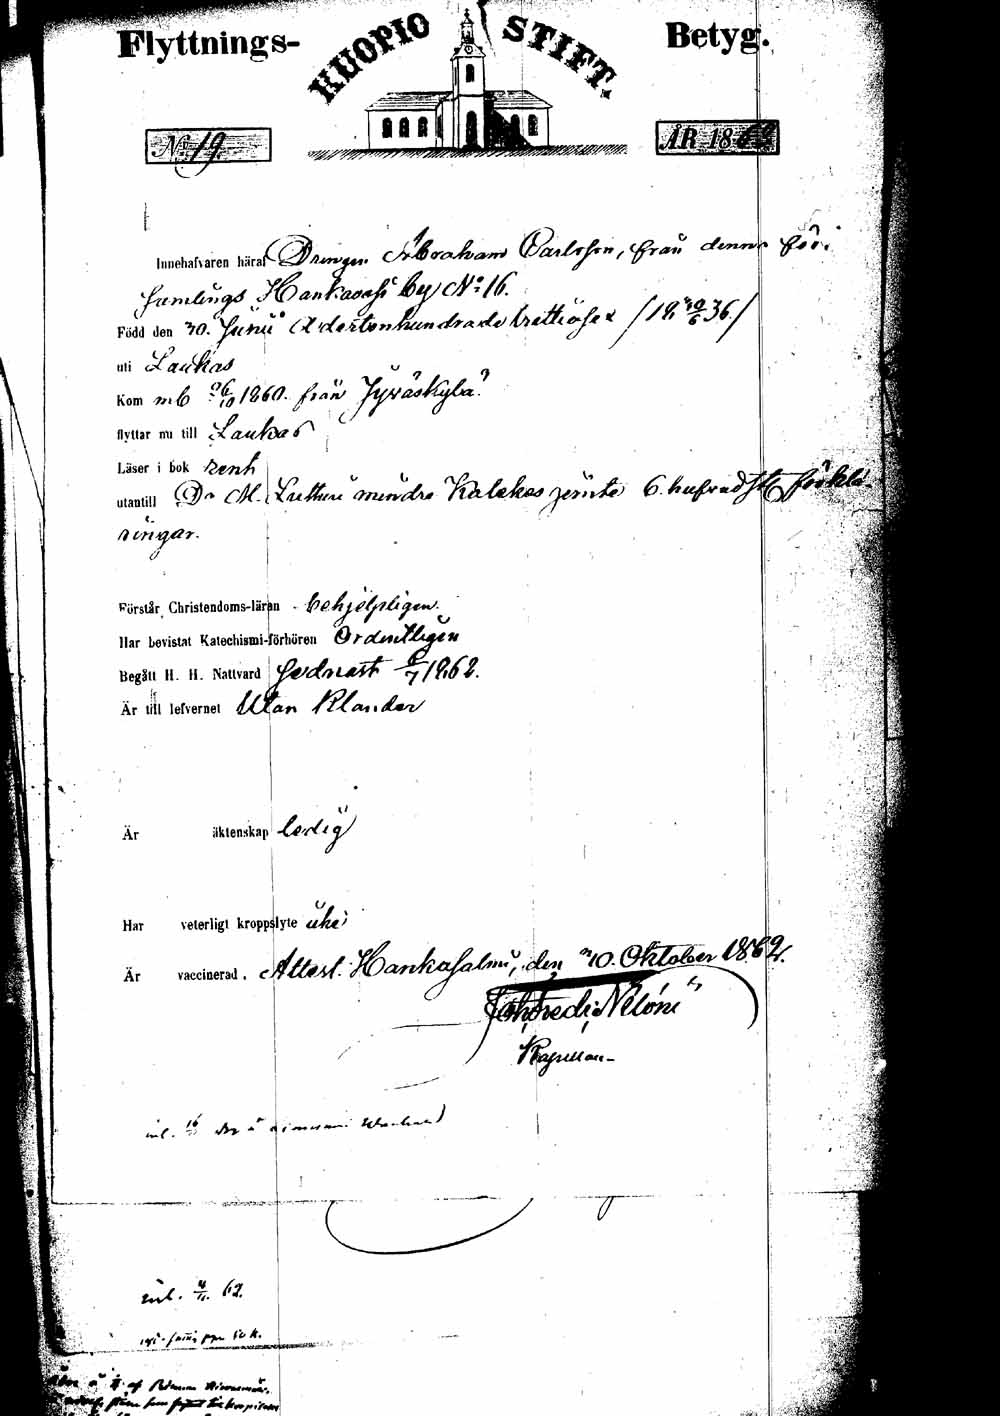 Flyttnings- KUOPIO STIFT. Betyg.
No 19. ÅR 1862
Innehafvaren häraf Drengen Abraham Carlsson, från denna för-
samlings Hankasalmi by No 16.
Född den 30. Junii Adertonhundrade trettiosex /18 30/6 36./
uti Laukas
Kom m b 26/10 1860. från Jyväskylä.
flyttar nu till Laukas
Läser i bok rent
utantill Dr M. Lutheri mindre Katekes jemte 6. hufvudst. förkla-
ringar.
Förstår Christendoms-läran behjelpligen.
Har bevistat Katechismi-förhören Ordentligen
Begått H. H. Nattvard sednast 6/7 1862.
Är till lefvernet Utan Klander
Är äktenskap ledig
Har veterligt kroppslyte icke;
Är vaccinerad. Attest. Hankasalmi, den 10. Oktober 1862.
Joh: Fredr: Nelón
Kapellan
inl.
inl. 4/11 62.